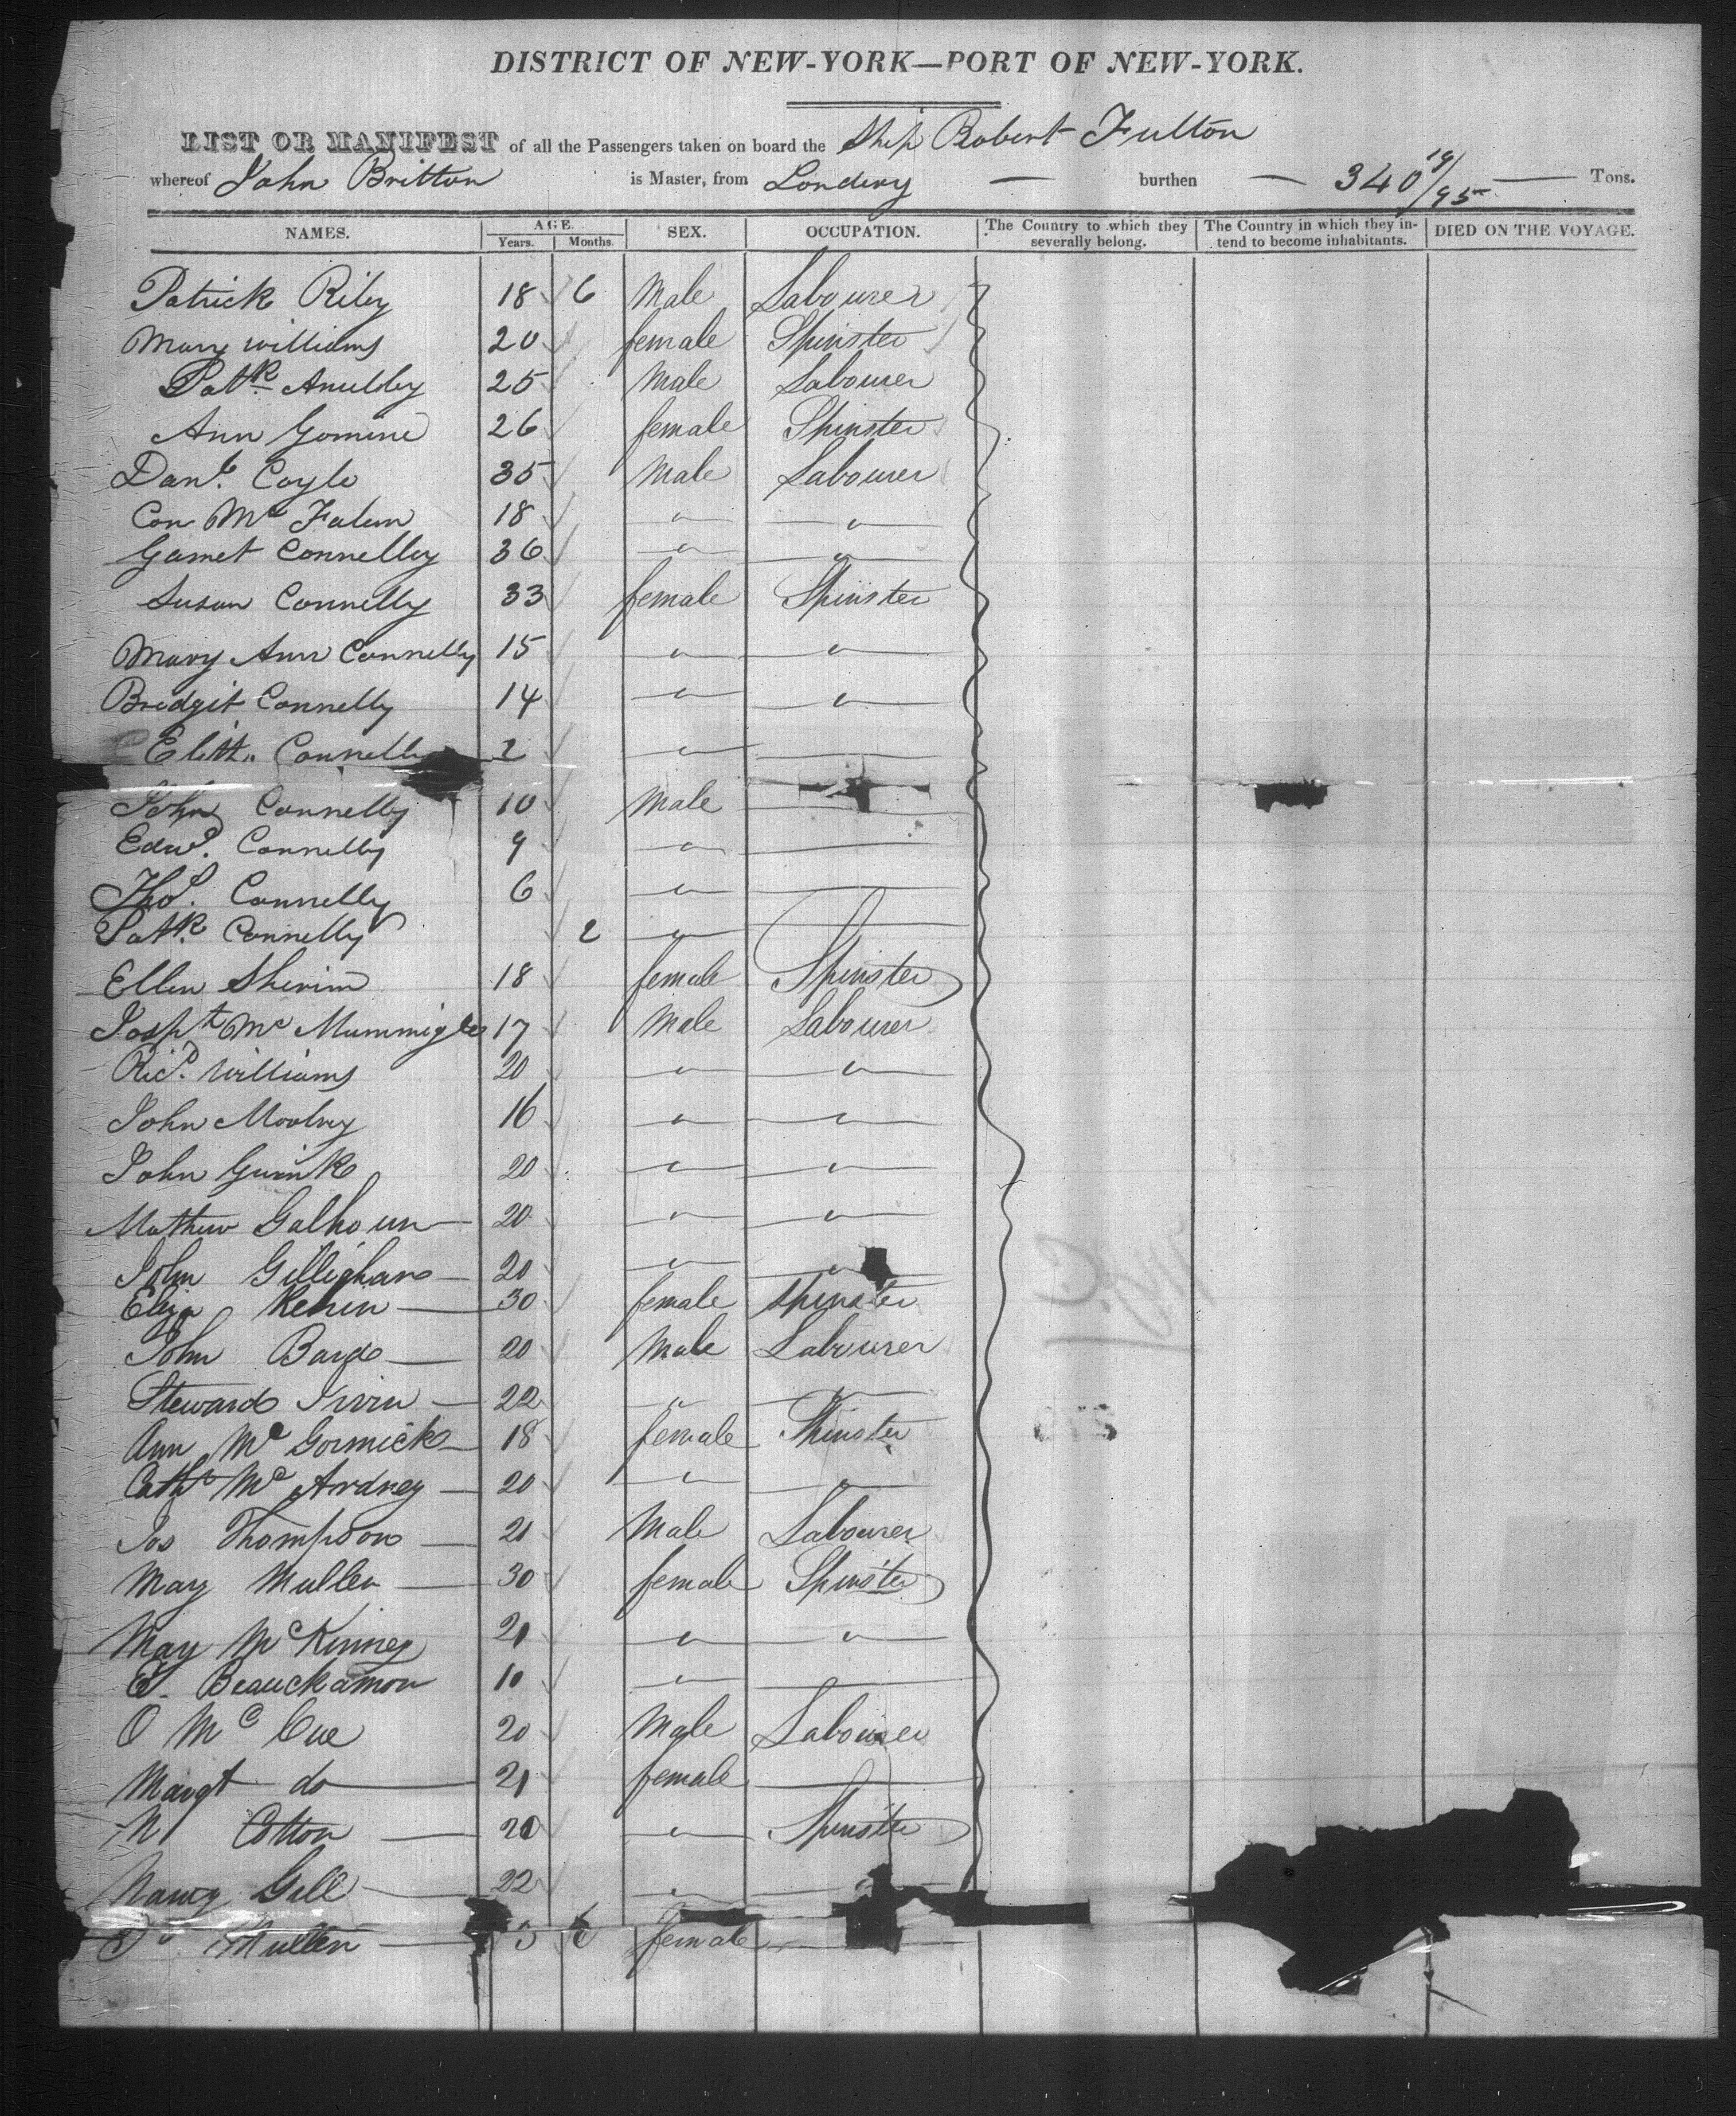 DISTRICT OF NEW-YORK—PORT OF NEW-YORK.
LIST OR MANIFEST of all the Passengers taken on board the Ship Robert Fulton
whereof John Britton is Master, from Londery — burthen — 340 19/95 — Tons.
NAMES. AGE. Years. Months. SEX. OCCUPATION. The Country to which they severally belong. The Country in which they intend to become inhabitants. DIED ON THE VOYAGE.
Patrick Riley 18 6 Male Labourer
Mary Williams 20 female Spinster
Patk. 25 Male Labourer
Ann Gomine 26 female Spinster
Danl. Coyle 35 Male Labourer
Con Mc Falen 18 " "
Garnet Connelly 36 " "
Susan Connelly 33 female Spinster
Mary Ann Connelly 15 " "
Bridgit Connelly 14 " "
Elith. Connelly 2 "
John Connelly 10 Male
Edwd. Connelly 9 "
Thos. Connelly 6 "
Patk. Connelly 2 "
Ellen Sherim 18 female Spinster
Josph Mc Mummigle 17 Male Labourer
Ricd. Williams 20 " "
John Moolny 16 " "
John 20 " "
Mathew Galhoun 20 " "
John Gillighan 20 " "
Eliza Renin 30 female Spinster
John Bard 20 Male Labourer
Steward Irvin 22 " "
Ann Mc Gormick 18 female Spinster
Cath Mc Ardney 20 " "
Jos Thompson 21 Male Labourer
May Mullen 30 female Spinster
May Mc Kinney 21 " "
E. Beauckamon 10 "
O Mc Cue 20 Male Labourer
Margt do 21 female
N Cotton 20 " Spinster
Nancy Gill 22 "
Mullen 3 6 female